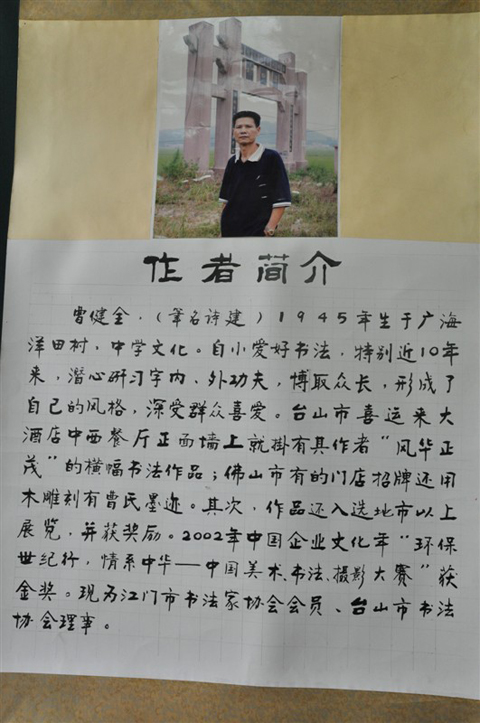 作者简介
曾健全，（笔名诗建）1945年生于广海
洋田村，中学文化。自小爱好书法，特别近10年
来，潜心研习字内、外功夫，博取众长，形成了
自己的风格，深受群众喜爱。台山市喜运来大
酒店中西餐厅正面墙上就掛有其作者“风华正
茂”的横幅书法作品；佛山市有的门店招牌还用
木雕刻有曾氏墨迹。其次，作品还入选地市以上
展览，并获奖励。2002年中国企业文化年“环保
世纪行，情系中华——中国美术、书法、摄影大赛”获
金奖。现为江门市书法家协会会员、台山市书法
协会理事。